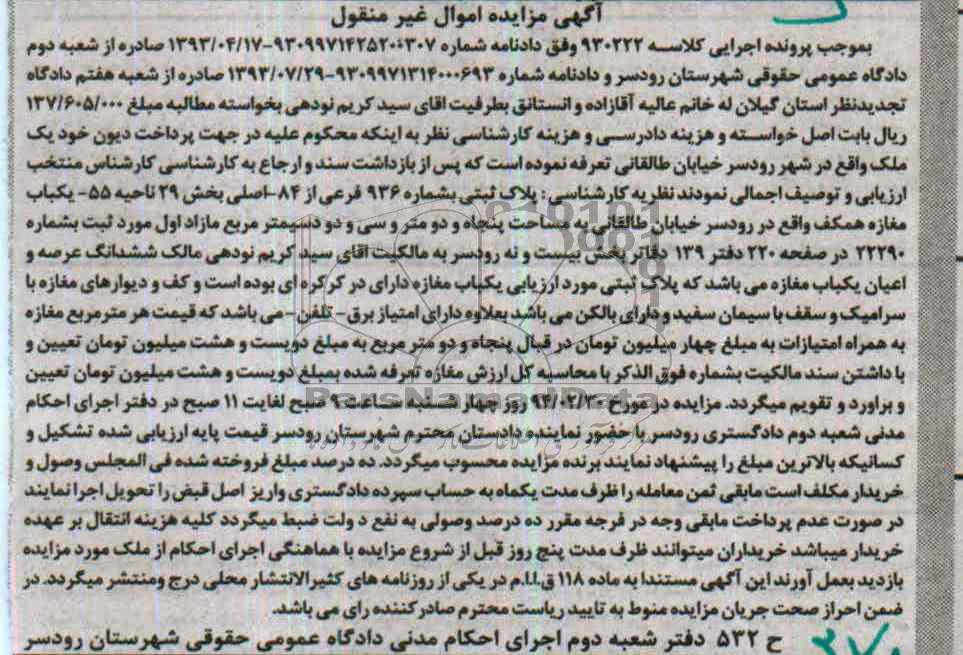 آگهی مزایده اموال غیر منقول
بموجب پرونده اجرایی کلاسه ۹۳۰۲۲۲ وفق دادنامه شماره ۹۳۰۹۹۷۱۴۲۵۲۰۰۳۰۷-۱۳۹۳/۰۴/۱۷ صادره از شعبه دوم
دادگاه عمومی حقوقی شهرستان رودسر و دادنامه شماره ۹۳۰۹۹۷۱۳۱۴۰۰۰۶۹۳-۱۳۹۳/۰۷/۲۹ صادره از شعبه هفتم دادگاه
تجدیدنظر استان گیلان له خانم عالیه آقازاده و انستانق بطرفیت اقای سید کریم نودهی بخواسته مطالبه مبلغ ۱۳۷/۶۰۵/۰۰۰
ریال بابت اصل خواسته و هزینه دادرسی و هزینه کارشناسی نظر به اینکه محکوم علیه در جهت پرداخت دیون خود یک
ملک واقع در شهر رودسر خیابان طالقانی تعرفه نموده است که پس از بازداشت سند و ارجاع به کارشناسی کارشناس منتخب
ارزیابی و توصیف اجمالی نمودند نظر به کارشناسی: پلاک ثبتی بشماره ۹۳۶ فرعی از ۸۴-اصلی بخش ۲۹ ناحیه ۵۵- یکباب
مغازه همکف واقع در رودسر خیابان طالقانی به مساحت پنجاه و دو متر و سی و دو دسیمتر مربع مازاد اول مورد ثبت بشماره
۲۲۲۹۰ در صفحه ۲۲۰ دفتر ۱۳۹ دفاتر بخش بیست و نه رودسر به مالکیت اقای سید کریم نودهی مالک ششدانگ عرصه و
اعیان یکباب مغازه می باشد که پلاک ثبتی مورد ارزیابی یکباب مغازه دارای در کرکره ای بوده است و کف و دیوارهای مغازه با
سرامیک و سقف با سیمان سفید و دارای بالکن می باشد بعلاوه دارای امتیاز برق- تلفن- می باشد که قیمت هر متر مربع مغازه
به همراه امتیازات به مبلغ چهار میلیون تومان در قبال پنجاه و دو متر مربع به مبلغ دویست و هشت میلیون تومان تعیین و
با داشتن سند مالکیت بشماره فوق الذکر با محاسبه کل ارزش مغازه تعرفه شده بمبلغ دویست و هشت میلیون تومان تعیین
و براورد و تقویم میگردد. مزایده در مورخ ۹۴/۰۲/۳۰ روز چهار شنبه ساعت ۹ صبح لغایت ۱۱ صبح در دفتر اجرای احکام
مدنی شعبه دوم دادگستری رودسر با حضور نماینده دادستان محترم شهرستان رودسر قیمت پایه ارزیابی شده تشکیل و
کسانیکه بالاترین مبلغ را پیشنهاد نمایند برنده مزایده محسوب میگردد. ده درصد مبلغ فروخته شده فی المجلس وصول و
خریدار مکلف است مابقی ثمن معامله را ظرف مدت یکماه به حساب سپرده دادگستری واریز اصل قبض را تحویل اجرا نمایند
در صورت عدم پرداخت مابقی وجه در فرجه مقرر ده درصد وصولی به نفع دولت ضبط میگردد کلیه هزینه انتقال بر عهده
خریدار میباشد خریداران میتوانند ظرف مدت پنج روز قبل از شروع مزایده با هماهنگی اجرای احکام از ملک مورد مزایده
بازدید بعمل آورند این آگهی مستندا به ماده ۱۱۸ ق.ا.ا.م در یکی از روزنامه های کثیرالانتشار محلی درج ومنتشر میگردد. در
ضمن احراز صحت جریان مزایده منوط به تایید ریاست محترم صادرکننده رای می باشد.
ح ۵۳۲ دفتر شعبه دوم اجرای احکام مدنی دادگاه عمومی حقوقی شهرستان رودسر
ParsNamadData